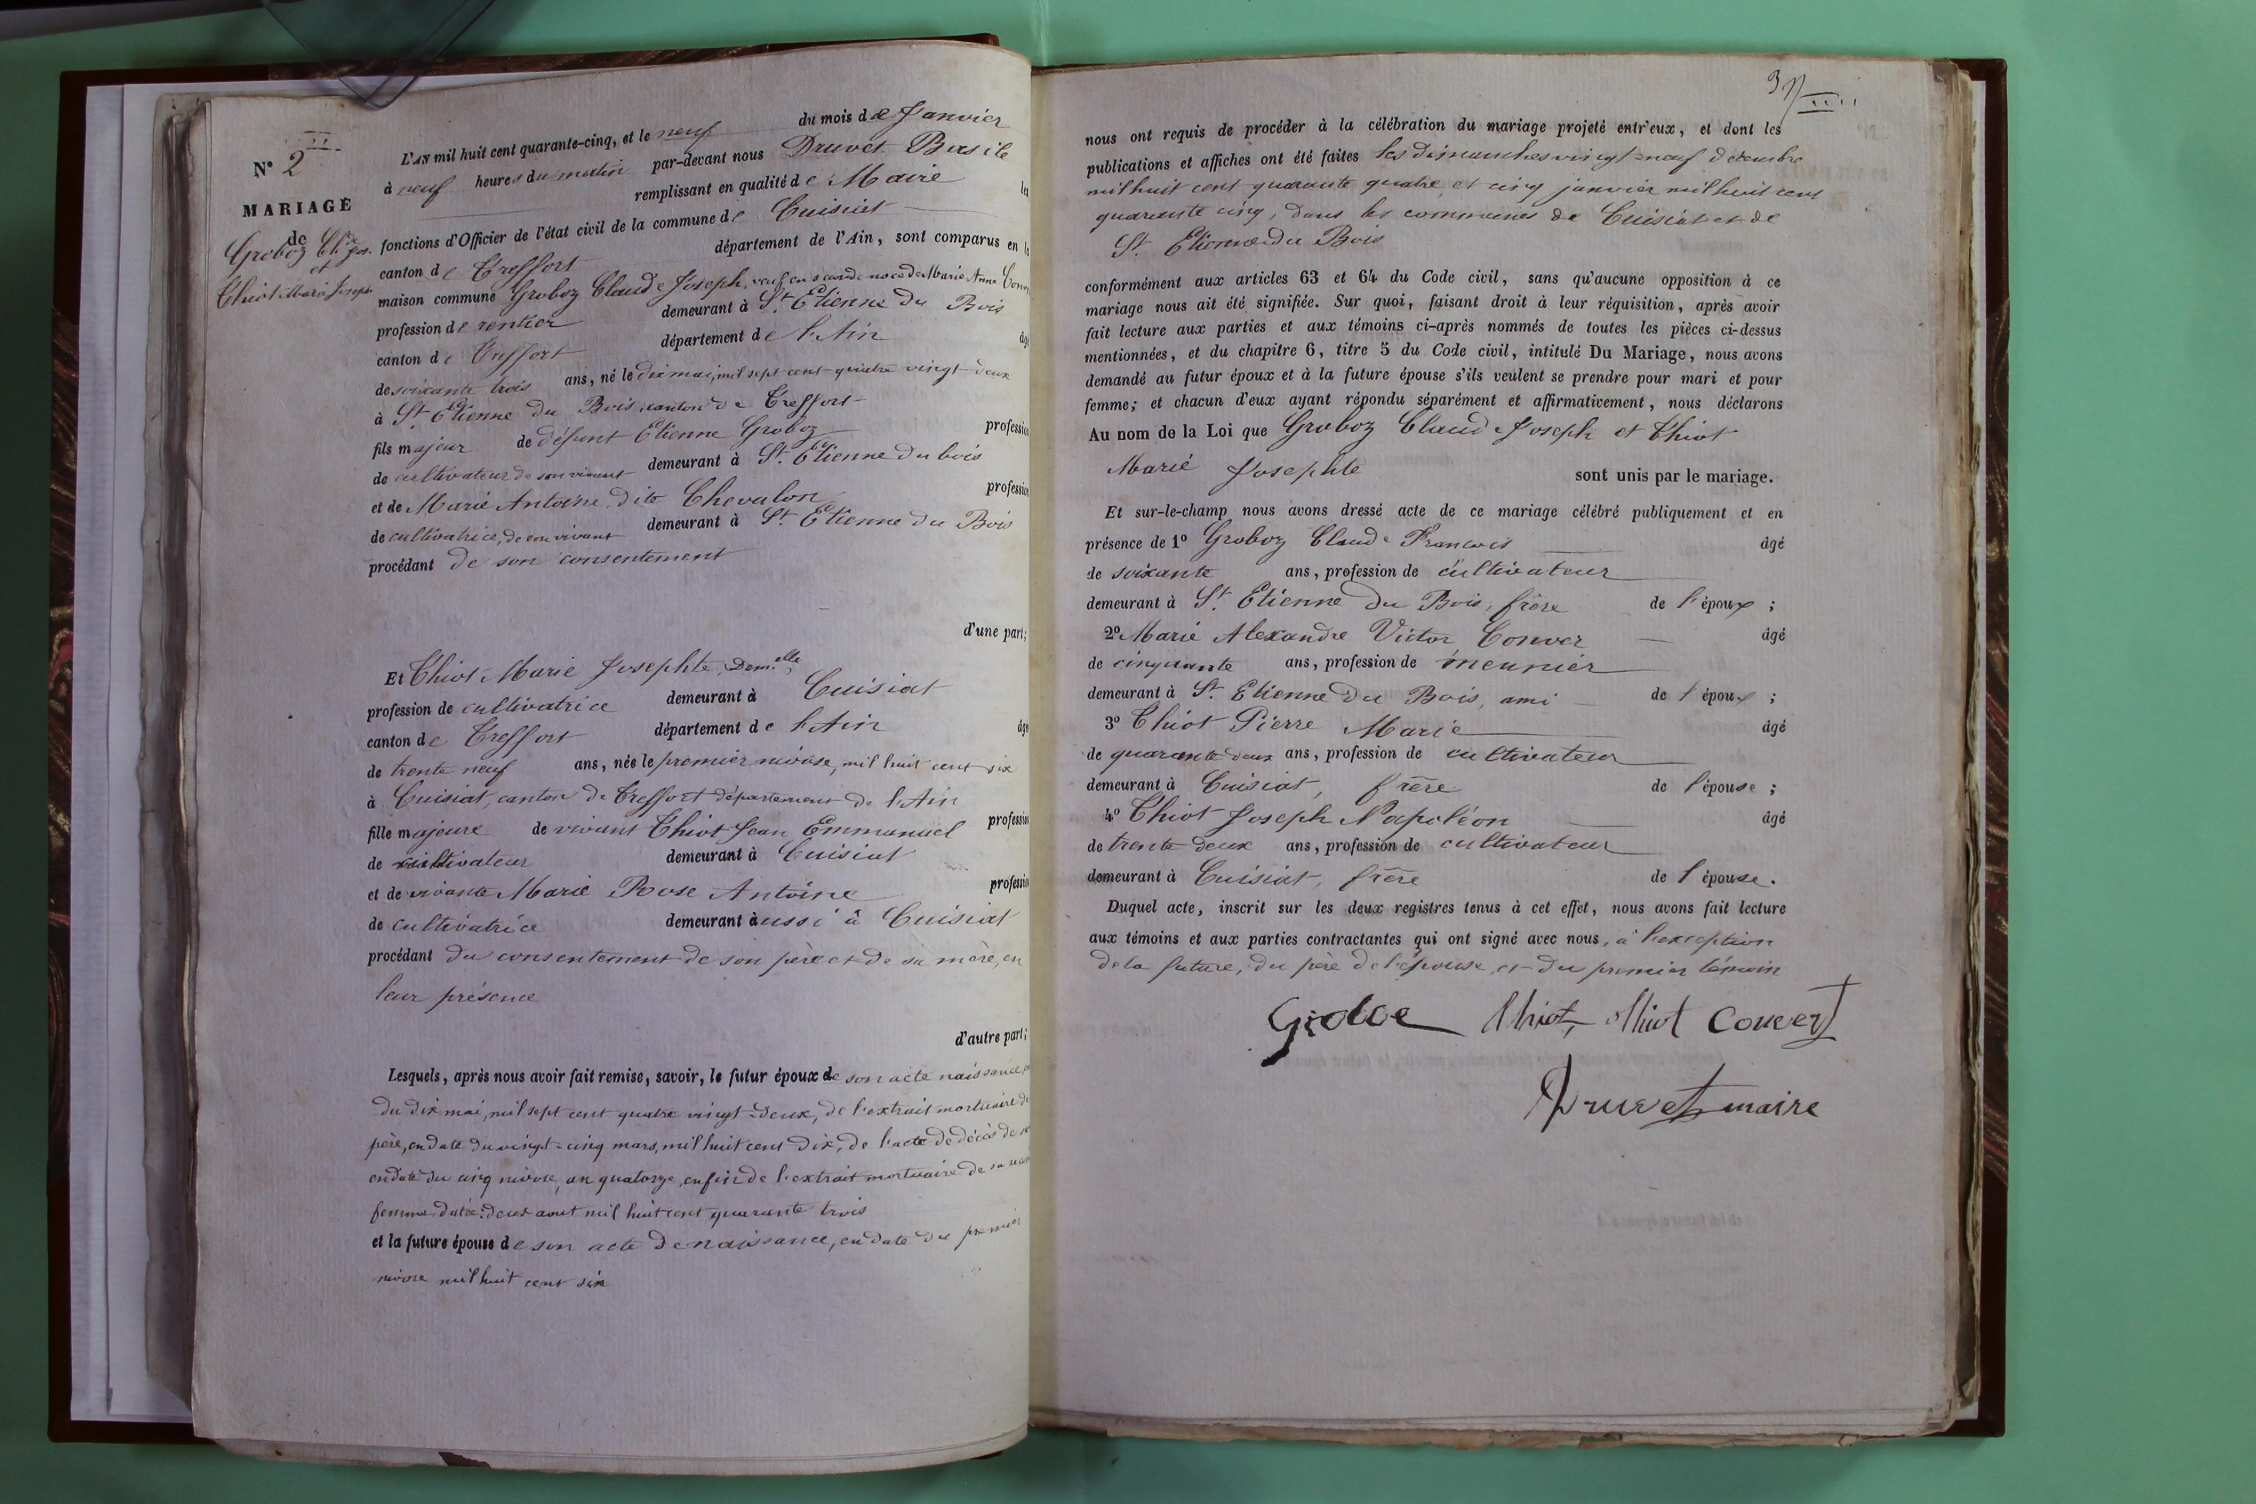 N° 2
MARIAGE
de
Groboz Cl. Jos.
et
Thiot Marie Josephte
L'AN mil huit cent quarante-cinq, et le neuf du mois de Janvier
à neuf heures du matin par-devant nous Druvet Basile
remplissant en qualité de Maire les
fonctions d'Officier de l'état civil de la commune de Cuisiat
canton de Treffort département de l'Ain, sont comparus en la
maison commune Groboz Claude Joseph, veuf en seconde noce de Marie Anne
profession de rentier demeurant à St. Etienne du Bois
canton de Treffort département de l'Ain âgé
de soixante trois ans, né le dix mai, mil sept cent quatre vingt deux
à St. Etienne du Bois, canton de Treffort
fils majeur de défunt Etienne Groboz profession
de cultivateur de son vivant demeurant à St. Etienne du bois
et de Marie Antoine dite Chevalon profession
de cultivatrice, de son vivant demeurant à St. Etienne du Bois
procédant de son consentement
d'une part;
Et Thiot Marie Josephte, Dem.elle
profession de cultivatrice demeurant à Cuisiat
canton de Treffort département de l'Ain âgé
de trente neuf ans, née le premier nivose, mil huit cent six
à Cuisiat, canton de Treffort département de l'Ain
fille majeure de vivant Thiot Jean Emmanuel profession
de cultivateur demeurant à Cuisiat
et de vivante Marie Rose Antoine profession
de cultivatrice demeurant aussi à Cuisiat
procédant du consentement de son père et de sa mère, en
leur présence
d'autre part;
Lesquels, après nous avoir fait remise, savoir, le futur époux de son acte naissance,
du dix mai, mil sept cent quatre vingt-deux, de l'extrait mortuaire de
père, en date du vingt-cinq mars, mil huit cent dix, de l'acte de décès de
en date du cinq nivose, an quatorze, enfin de l'extrait mortuaire de sa
femme datée: deux aout mil huit cent quarante trois
et la future épouse de son acte de naissance, en date du premier
nivose mil huit cent six
nous ont requis de procéder à la célébration du mariage projeté entr'eux, et dont les
publications et affiches ont été faites les dimanches vingt-neuf décembre
mil huit cent quarante quatre et cinq janvier mil huit cent
quarante cinq, dans les communes de Cuisiat et de
St. Etienne du Bois
conformément aux articles 63 et 64 du Code civil, sans qu'aucune opposition à ce
mariage nous ait été signifiée. Sur quoi, faisant droit à leur réquisition, après avoir
fait lecture aux parties et aux témoins ci-après nommés de toutes les pièces ci-dessus
mentionnées, et du chapitre 6, titre 5 du Code civil, intitulé Du Mariage, nous avons
demandé au futur époux et à la future épouse s'ils veulent se prendre pour mari et pour
femme; et chacun d'eux ayant répondu séparément et affirmativement, nous déclarons
Au nom de la Loi que Groboz Claude Joseph et Thiot
Marie Josephte sont unis par le mariage.
Et sur-le-champ nous avons dressé acte de ce mariage célébré publiquement et en
présence de 1° Groboz Claude Francois âgé
de soixante ans, profession de cultivateur
demeurant à St. Etienne du Bois, frère de l'époux;
2° Marie Alexandre Victor Conver âgé
de cinquante ans, profession de meunier
demeurant à St. Etienne du Bois, ami de l'époux;
3° Thiot Pierre Marie âgé
de quarante deux ans, profession de cultivateur
demeurant à Cuisiat, frère de l'épouse;
4° Thiot Joseph Napoléon âgé
de trente deux ans, profession de cultivateur
demeurant à Cuisiat, frère de l'épouse.
Duquel acte, inscrit sur les deux registres tenus à cet effet, nous avons fait lecture
aux témoins et aux parties contractantes qui ont signé avec nous, à l'exception
de la future, du père de l'épouse et du premier témoin
Thiot Thiot Convert
Druvet maire